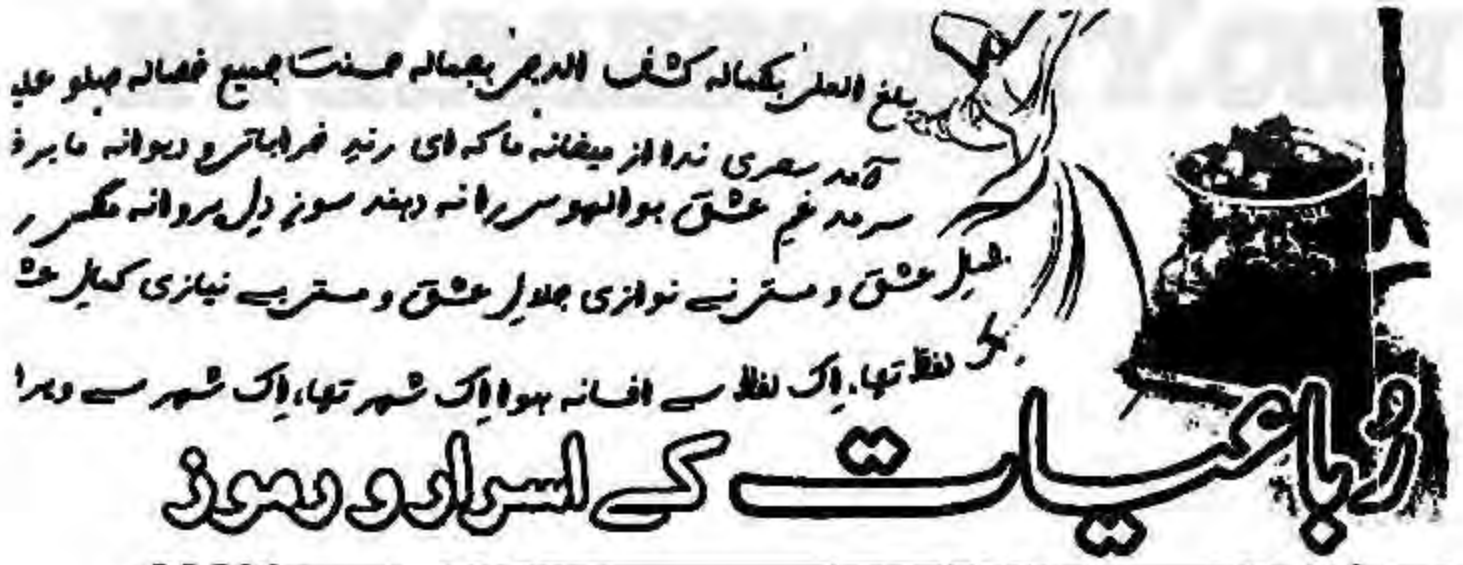 بلغ العلیٰ بکمالہ کشف الدجیٰ بجمالہ حسنت جمیع خصالہ صلو علیہ
آمد سحری ندا از میخانہ ما کہ ای رندِ خراباتی و دیوانہ ما برخ
سرمد غمِ عشق بوالہوس را نہ دہند سوزِ دلِ پروانہ مگس ر
عشق و مستی نے نوازی جلالِ عشق و مستی بے نیازی کمالِ عش
لفظ تھا، اِک لفظ سے افسانہ ہوا اِک شہر تھا، اِک شہر سے ویرا
رُباعیات کے اسرار و رموز